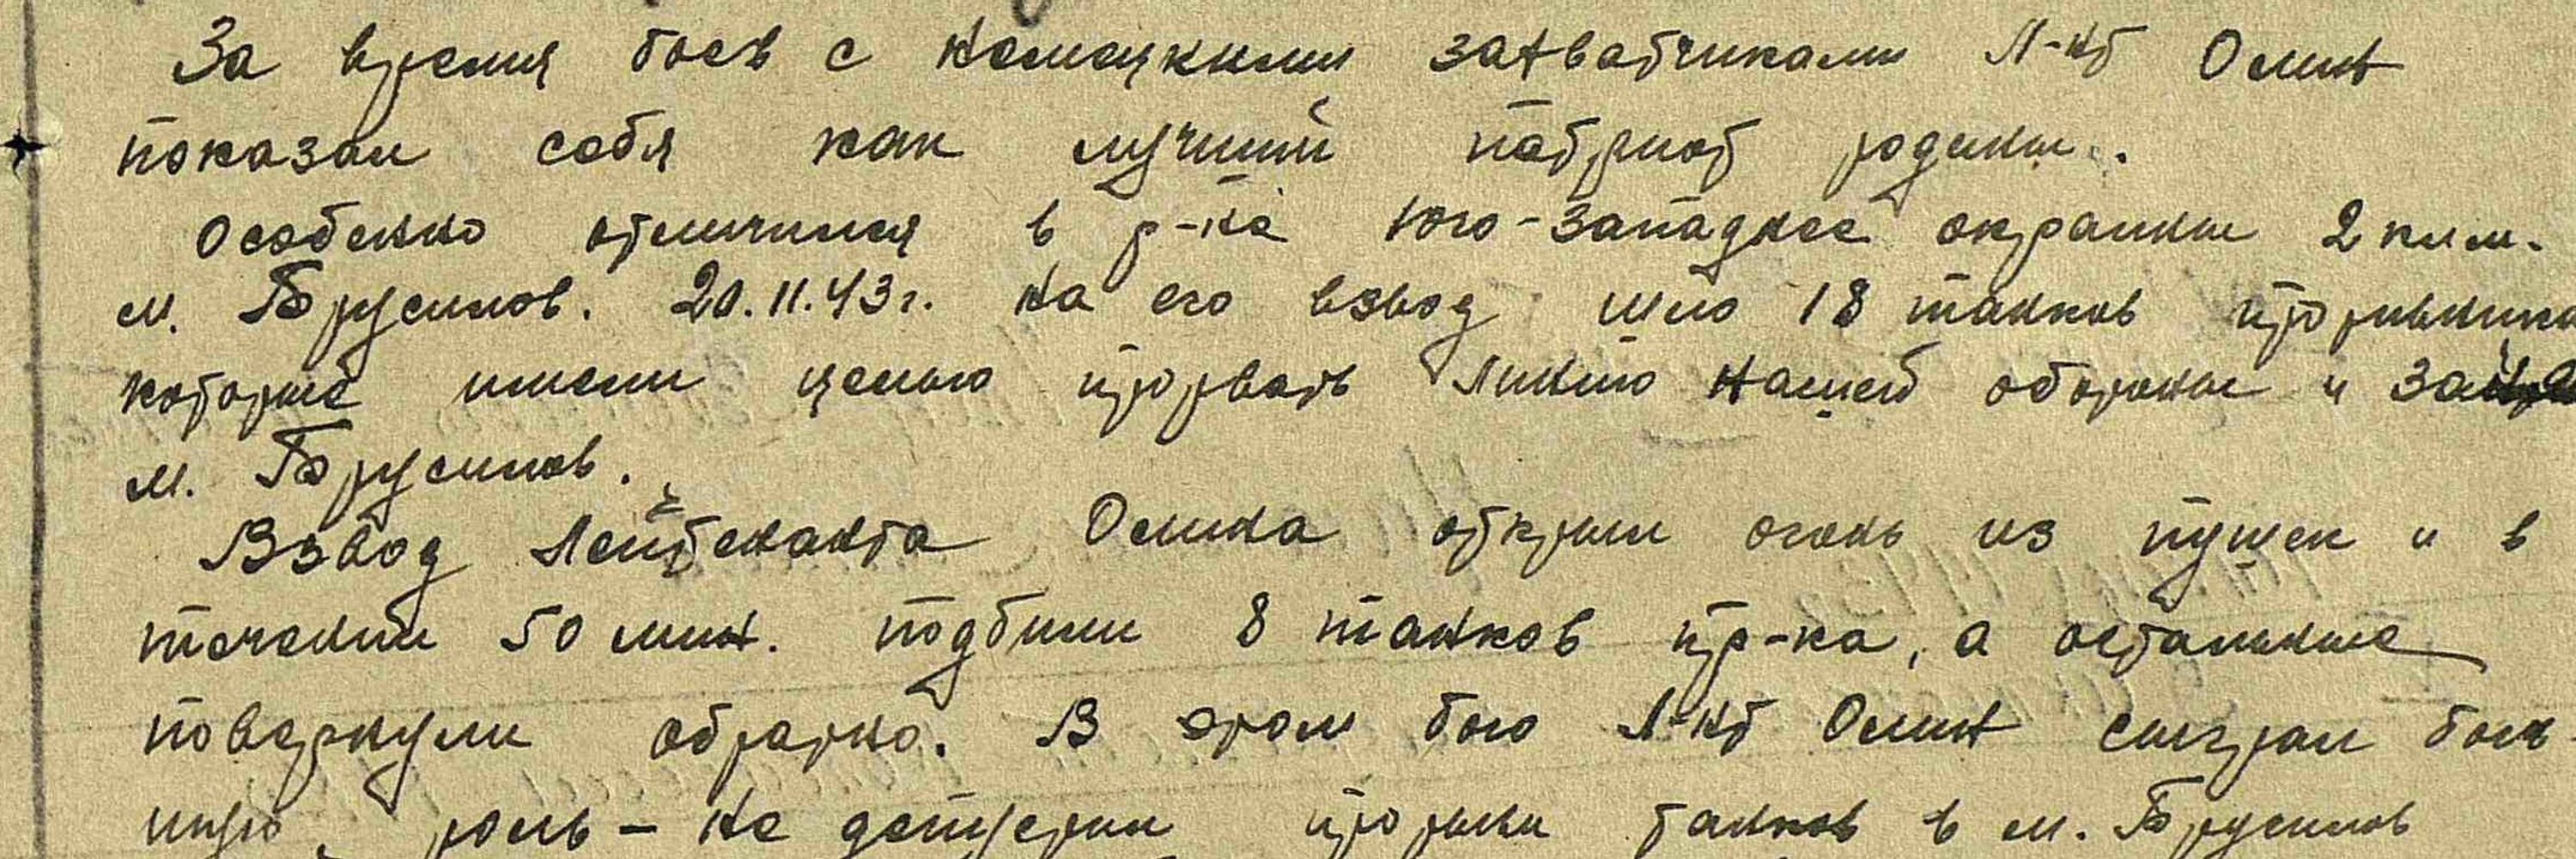 За время боев с немецкими захватчиками Л-нт Олин
показал себя как лучший патриот родины.
Особенно отличился в р-не Юго-Западнее окраины 2 клм.
м. Брусилов. 20.11.43 г. на его взвод шло 18 танков противника
которые имели целью прорвать линию нашей обороны и
м. Брусилов.
Взвод Лейтенанта Олина открыли огонь из пушек и в
течении 50 мин. подбили 8 танков пр-ка, а остальные
повернули обратно. В этом бою Л-нт Олин сыграл боль-
шую роль - не допустил танков в м. Брусилов